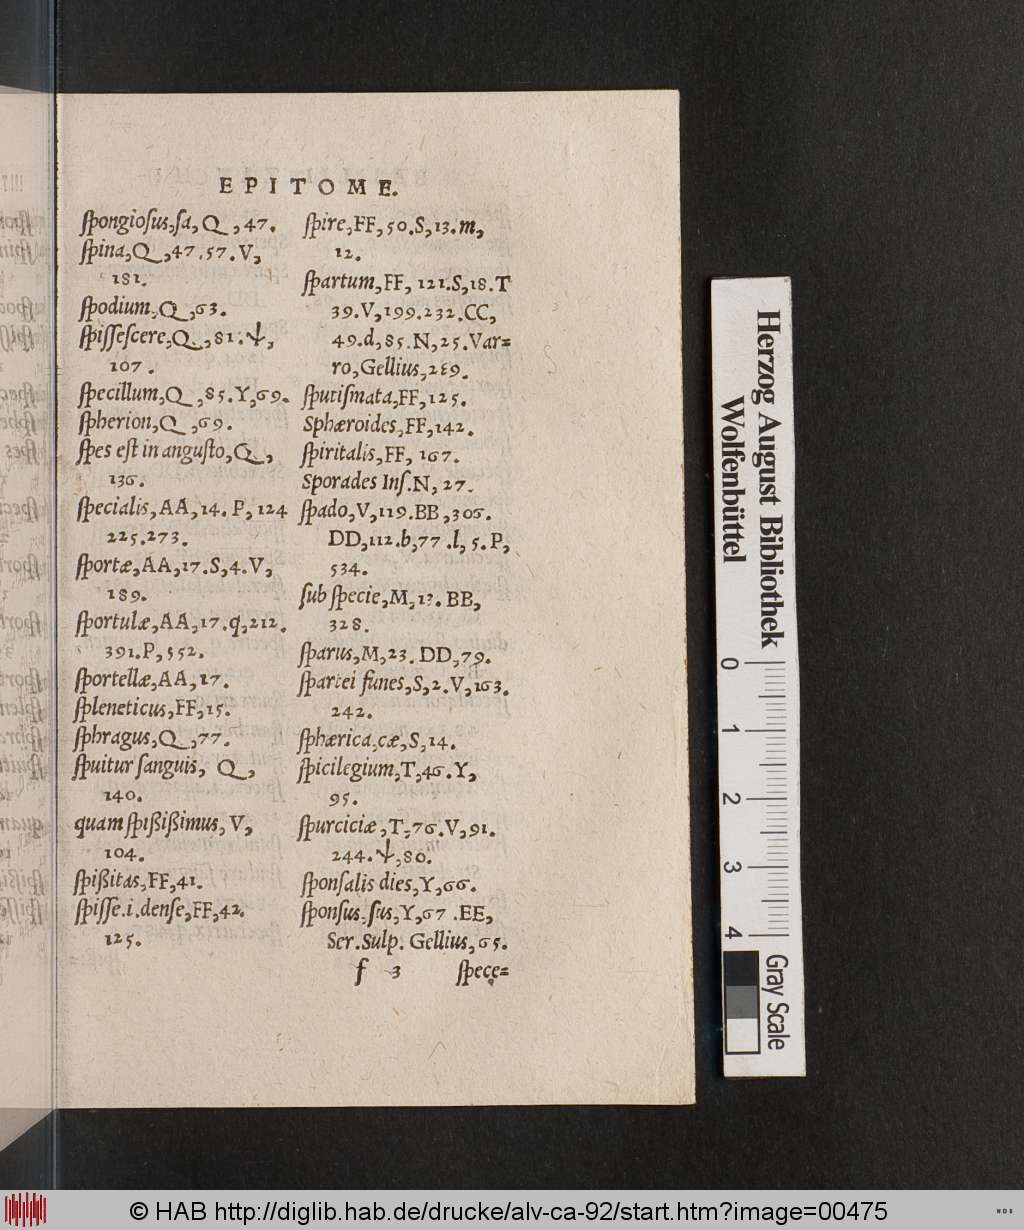 EPITOME.
ſpongioſus,ſa, Q ,47.
ſpina,Q ,47.57.V,
181.
ſpodium, Q ,63.
ſpiſſeſcere,Q ,81.Ψ,
107.
ſpecillum,Q ,85.Y,69.
ſpherion,Q ,69.
ſpes eſt in anguſto,Q ,
136.
ſpecialis,AA,14. P, 124
225.273.
ſportæ,AA,17.S,4.V,
189.
ſportulæ,AA,17.q,212.
391.P,552.
ſportellæ,AA,17.
ſpleneticus,FF,15.
ſphragus,Q ,77.
ſpuitur ſanguis, Q ,
140.
quam ſpißißimus, V,
104.
ſpißitas,FF,41.
ſpiſſe.i.denſe,FF,42.
125.
ſpire,FF,50.S,13.m,
12.
ſpartum,FF, 121.S,18.T
39.V,199.232.CC,
49.d,85.N,25.Var=
ro,Gellius,289.
ſputiſmata,FF,125.
Sphæroides,FF,142.
ſpiritalis,FF, 167.
Sporades Inſ.N, 27.
ſpado,V,119.BB,306.
DD,112.b,77.l, 5.P,
534.
ſub ſpecie,M, BB,
328.
ſparus,M,23. DD,79.
ſpartei funes,S,2.V,163.
242.
ſphærica,cæ,S,14.
ſpicilegium,T,46.Y,
95.
ſpurciciæ,T,76.V,91.
244.Ψ,80.
ſponſalis dies,Y,66.
ſponſus.ſus,Y,67 .EE,
Ser.Sulp. Gellius,65.
f 3 ſpece=
Herzog August Bibliothek
Wolfenbüttel
0 1 2 3 4
Gray Scale
© HAB http://diglib.hab.de/drucke/alv-ca-92/start.htm?image=00475